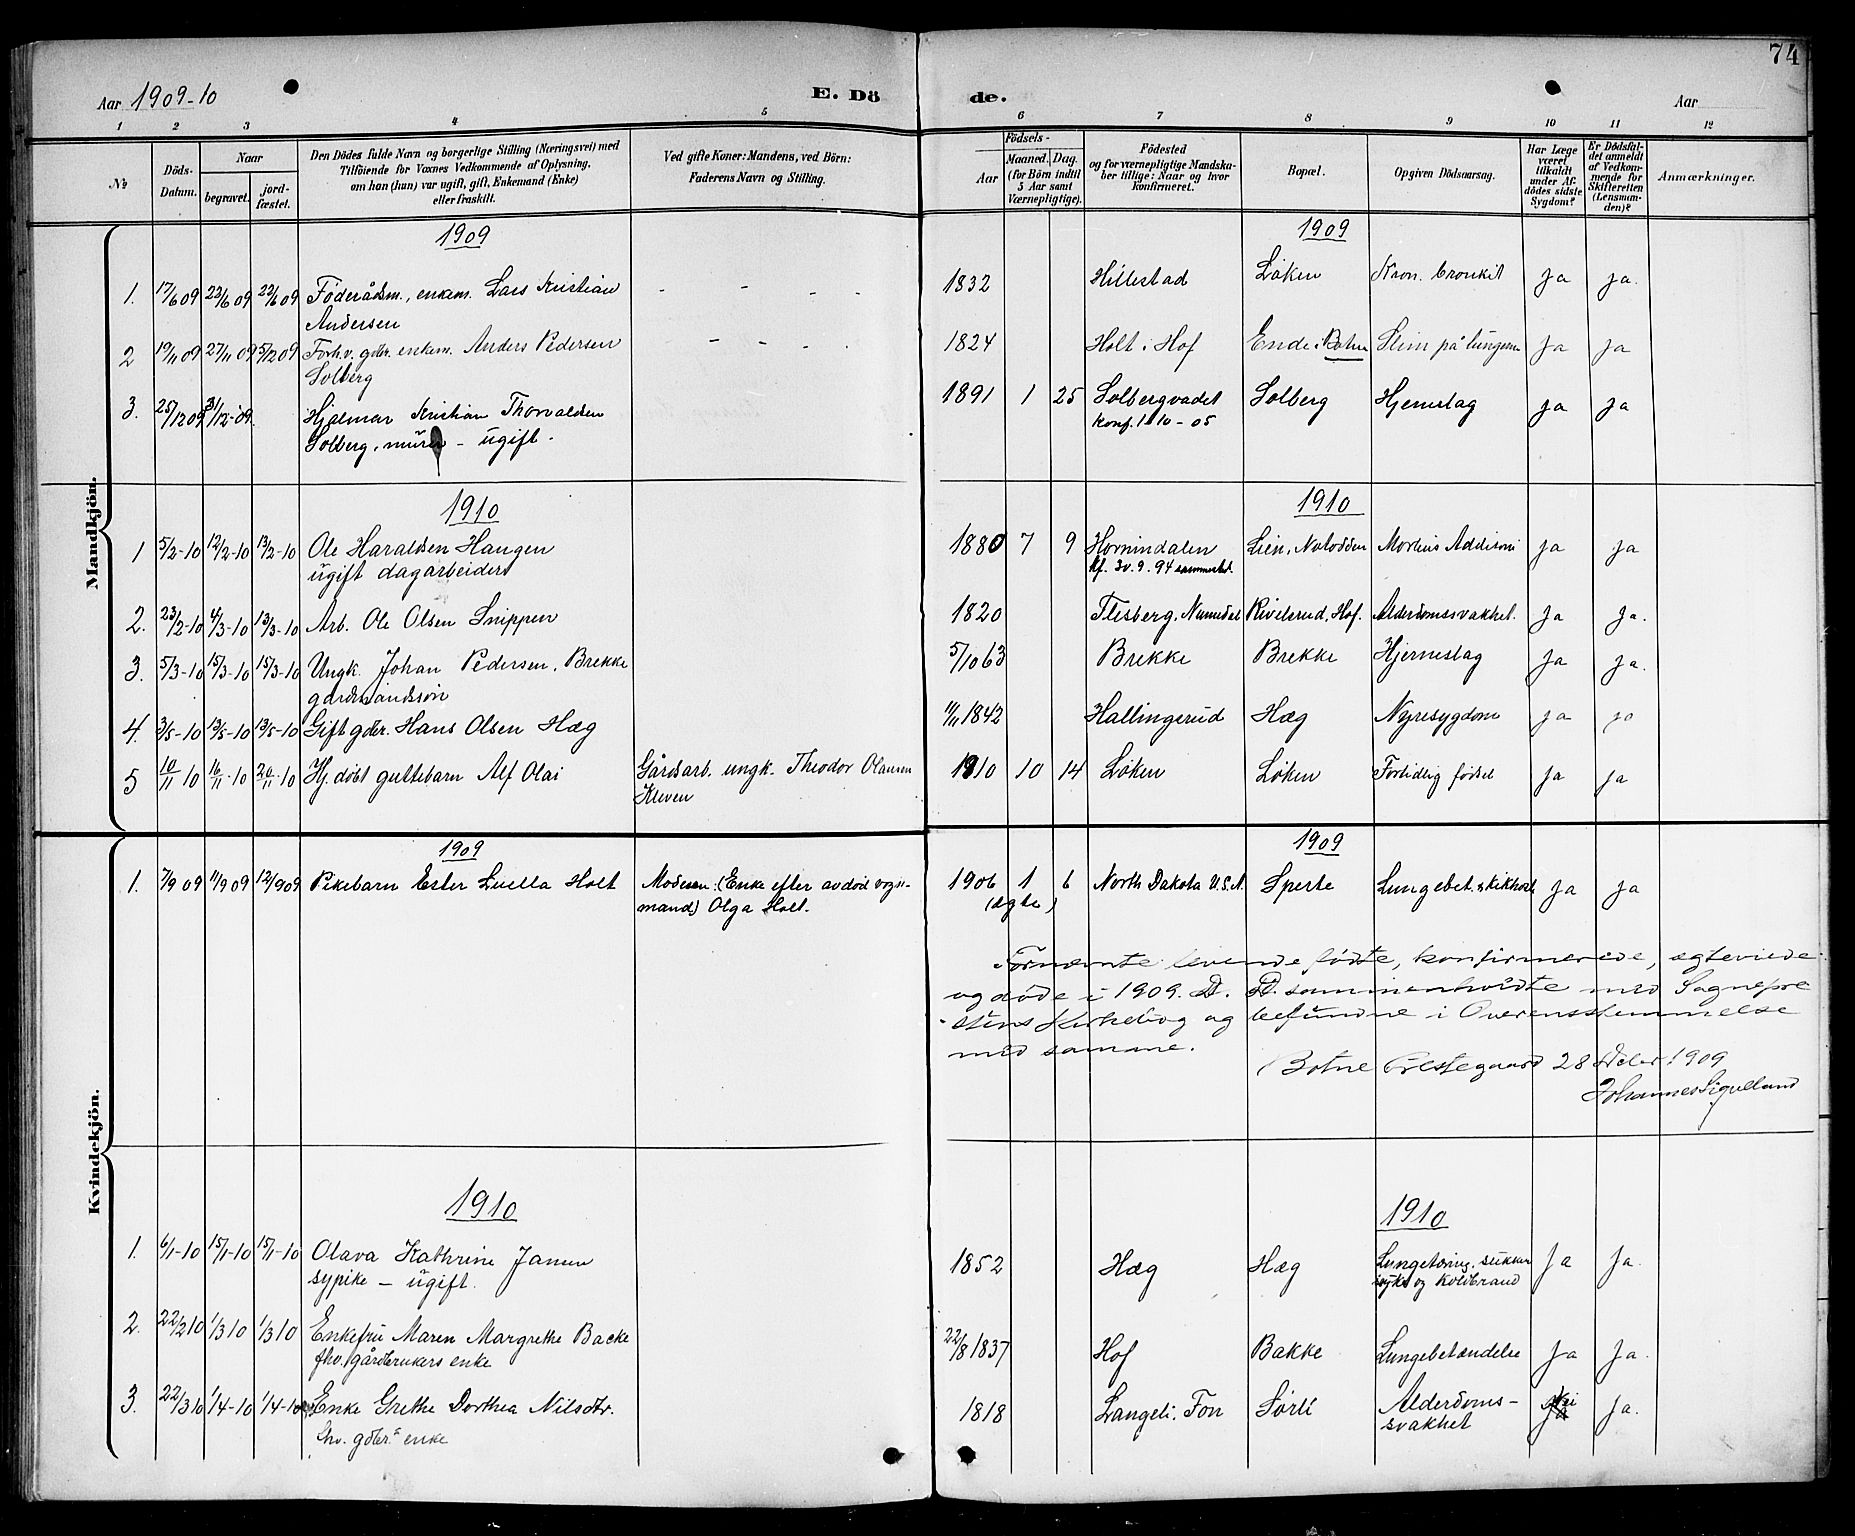 74
Aar 1909-10
E. Dö
de.
Aar
1 2 3 4 5 6 7 8 9 10 11 12
№
Döds-Datum.
Naar
begravet.
jord-fæstet.
Den Dödes fulde Navn og borgerlige Stilling (Næringsvei) med
Tilföiende for Voxnes Vedkommende af Oplysning,
om han (hun) var ugift, gift, Enkemand (Enke)
eller fraskilt.
Ved gifte Koner: Mandens, ved Börn:
Faderens Navn og Stilling.
Födsels-
Aar
Maaned. Dag.
(for Börn indtil
5 Aar samt
Værnepligtige).
Födested
og for værnepligtige Mandska-
ber tillige: Naar og hvor
konfirmeret.
Bopæl.
Opgiven Dödsaarsag.
Har Læge
været
tilkaldt
under Af-
dödes sidste
Sygdom?
Er Dödsfal-
det anmeldt
af Vedkom-
mende for
Skifteretten
(Lensman-
den)?
Anmærkninger.
Mandkjön.
1909
1909
1. 17/6 09 22/6 09 22/6 09 Föderådsm., enkem. Lars Kristian - - - - 1832 Hillestad Löken Kron. bronkit ja ja.
Andersen
2 19/11 09 27/11 09 5/12 09 Forh.v. gdbr. enkem. Anders Pedersen - - - - 1824 Holt i Hof Ende i Botne Slim på lungerne ja ja
Solberg
3. 25/12 09 31/12-09. Hjalmar Kristian Thorvaldsen 1891 1 25 Solbergvadet Solberg Hjerneslag ja ja
Solberg, murer - ugift. konf. 1/10-05
1910
1910
1 5/2-10 12/2-10 13/2-10 Ole Haraldsen Haugen 1880 7 9 Hornindalen Lien, Notodden Morbus Addisoni ja ja
ugift dagarbeider kf. 30.9.94 sammested.
2. 23/2-10 4/3-10 13/3-10 Arb. Ole Olsen Snippen 1820 Flesberg, Numedal Kivelsrud, Hof. Alderdomssvakhet. ja ja.
3. 5/3-10 15/3-10 15/3-10 Ungk. Johan Pedersen, Brekke 5/10 63 Brekke Brekke Hjerneslag ja ja.
gårdmandssön
4. 3/5-10 13/5-10 13/5-10 Gift gdbr. Hans Olsen Hæg 11/11 1842 Hallingerud Hæg Nyresygdom ja ja
5 10/11 10 16/11-10 20/11-10 Hj. döbt guttebarn Alf Olai Gårdsarb. ungk. Theodor Olausen 1910 10 14 Löken Löken Fortidlig födsel ja ja
Kleven
Kvindekjön.
1909
1909
1. 7/9 09 11/9 09 12/9 09 Pikebarn Ester Luella Holt Moderen: (Enke efter avdöd vogn- 1906 1 6 North Dakota U.S.A. Sperte Lungebet. &kikhoste ja ja
mand) Olga Holt. (ægte)
Fornævnte levende födte, konfirmerede, ægteviede
og döde i 1909. D. D. sammenholdte med Sognepre-
stens Kirkebog og befundne i Overensstemmelse
med samme.
Botne Prestegaard 28 Decbr. 1909
Johannes Sigvelland
1910
1910
1. 6/1-10 15/1-10 15/1-10 Olava Kathrine Jansen 1852 Hæg Hæg Lungetæring, sukker ja ja.
sypike - ugift. syke og koldbrand
2. 22/2 10 1/3 10 1/3 10 Enkefru Maren Margrethe Backe 22/8 1837 Hof Bakke Lungebetændelse ja ja.
fhv. gårdbrukers enke
3. 22/3 10 1/4-10 1/4-10 Enke Grethe Dorthea Nilsdtr. 1818 Langeli, Fon Sörli Alderdoms- Nei ja.
fhv. gdbr.s enke svakhet